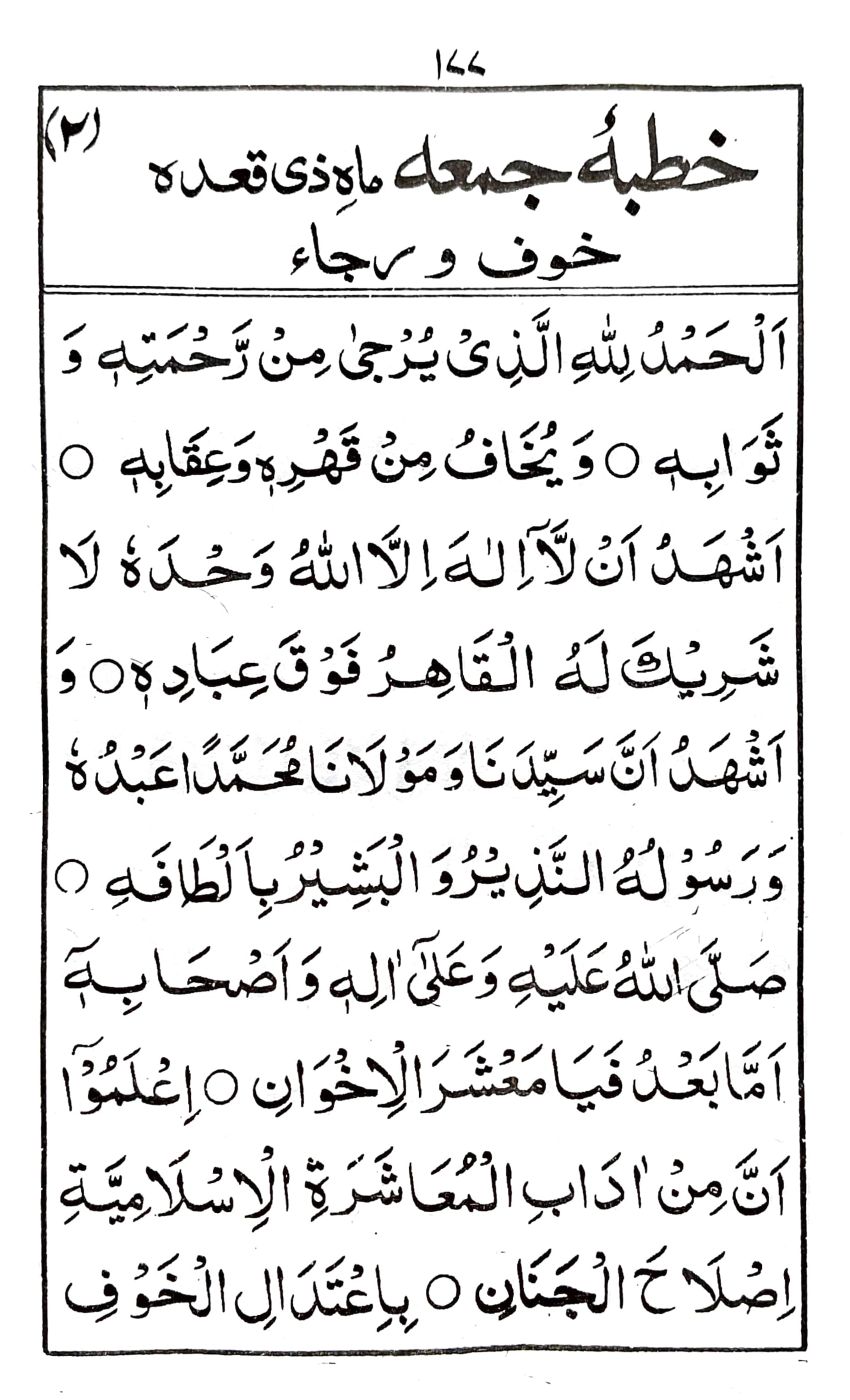 ۱۷۷
(۲)
خطبۂ جمعه ماہِ ذی قعدہ
خوف و رجاء
اَلْحَمْدُ لِلّٰهِ الَّذِیْ یُرْجیٰ مِنْ رَّحْمَتِهٖ وَ
ثَوَابِهٖ ○ وَیُخَافُ مِنْ قَهْرِهٖ وَعِقَابِهٖ ○
اَشْهَدُ اَنْ لَّآ اِلٰهَ اِلَّا اللّٰهُ وَحْدَهٗ لَا
شَرِیْكَ لَهُ الْقَاهِرُ فَوْقَ عِبَادِهٖ ○ وَ
اَشْهَدُ اَنَّ سَیِّدَنَا وَمَوْلَانَا مُحَمَّدًا عَبْدُهٗ
وَرَسُوْلُهُ النَّذِیْرُ وَ الْبَشِیْرُ بِاَلْطَافَهِ ○
صَلَّی اللّٰهُ عَلَیْهِ وَعَلٰٓی اٰلِهٖ وَاَصْحَابِهٖٓ
اَمَّا بَعْدُ فَیَا مَعْشَرَ الْاِخْوَانِ ○ اِعْلَمُوْٓا
اَنَّ مِنْ اٰدَابِ الْمُعَاشَرَةِ الْاِسْلَامِیَّةِ
اِصْلَاحَ الْجَنَانِ ○ بِاِعْتَدَالِ الْخَوْفِ